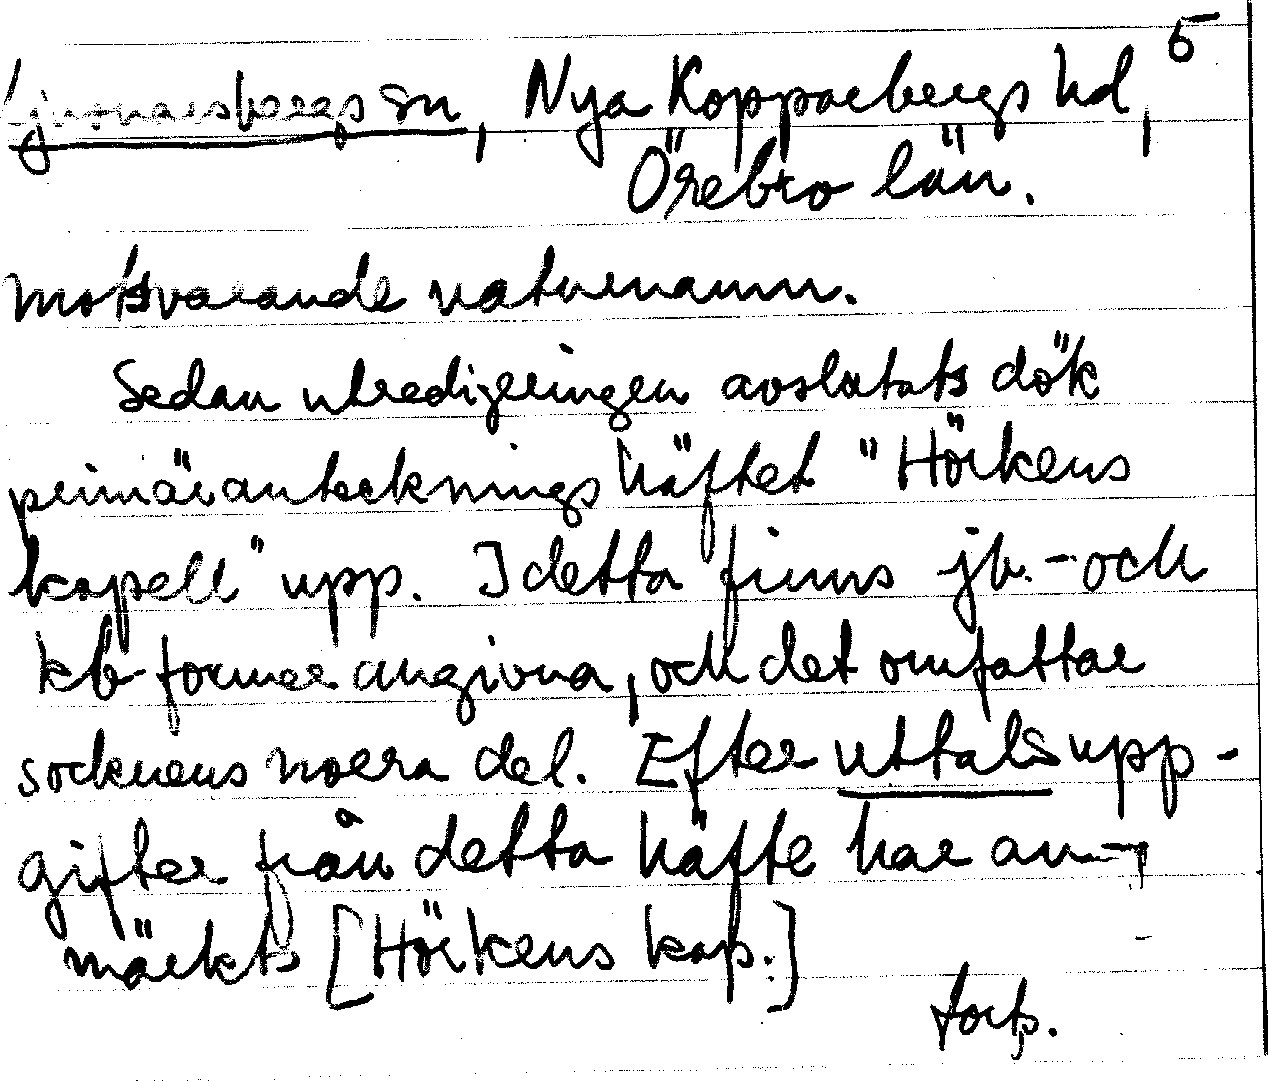 5
Ljusnarsbergs sn, Nya Kopparbergs hd,
Örebro län.
motsvarande naturnamn.
Sedan utredigeringen avslutats dök
primäranteckningshäftet "Hörkens
kapell" upp. I detta finns jb.- och
kb-former angivna, och det omfattar
socknens norra del. Efter uttalsupp-
gifter från detta häfte har an-
märkts [Hörkens kap.]
forts.